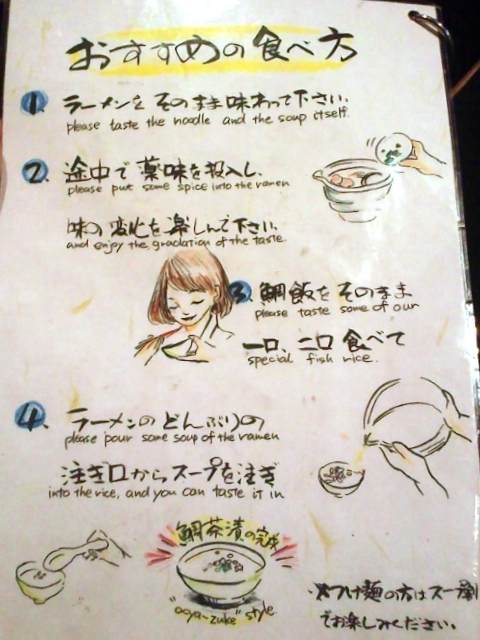 おすすめの食べ方
1. ラーメンをそのまま味わって下さい.
please taste the noodle and the soup itself.
2. 途中で薬味を投入し、
please put some spice into the ramen
味の変化を楽しんで下さい.
and enjoy the gradation of the taste.
3. 鯛飯をそのまま
please taste some of our
一口、二口食べて
special fish rice.
4. ラーメンのどんぶりの
please pour some soup of the ramen
注ぎ口からスープを注ぎ
into the rice, and you can taste it in
鯛茶漬の完成
"oga-zuke" style.
つけ麺の方はスープ割
でお楽しみください.